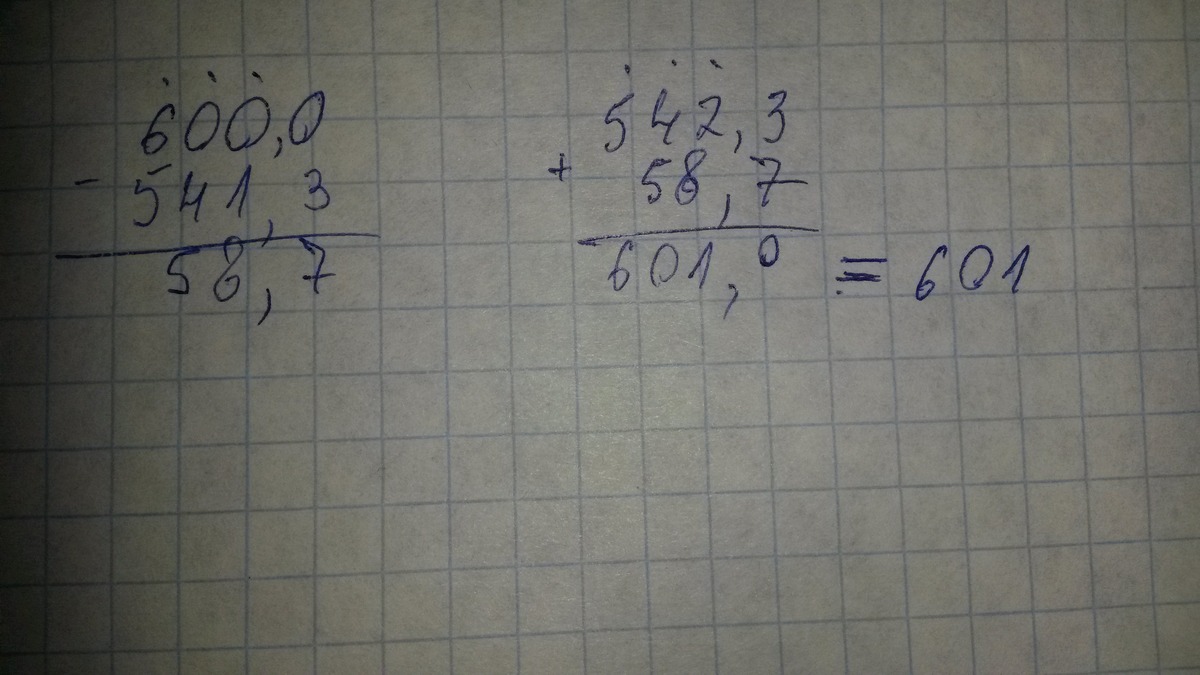 600,0
- 541,3
58,7
542,3
+ 58,7
601,0 = 601